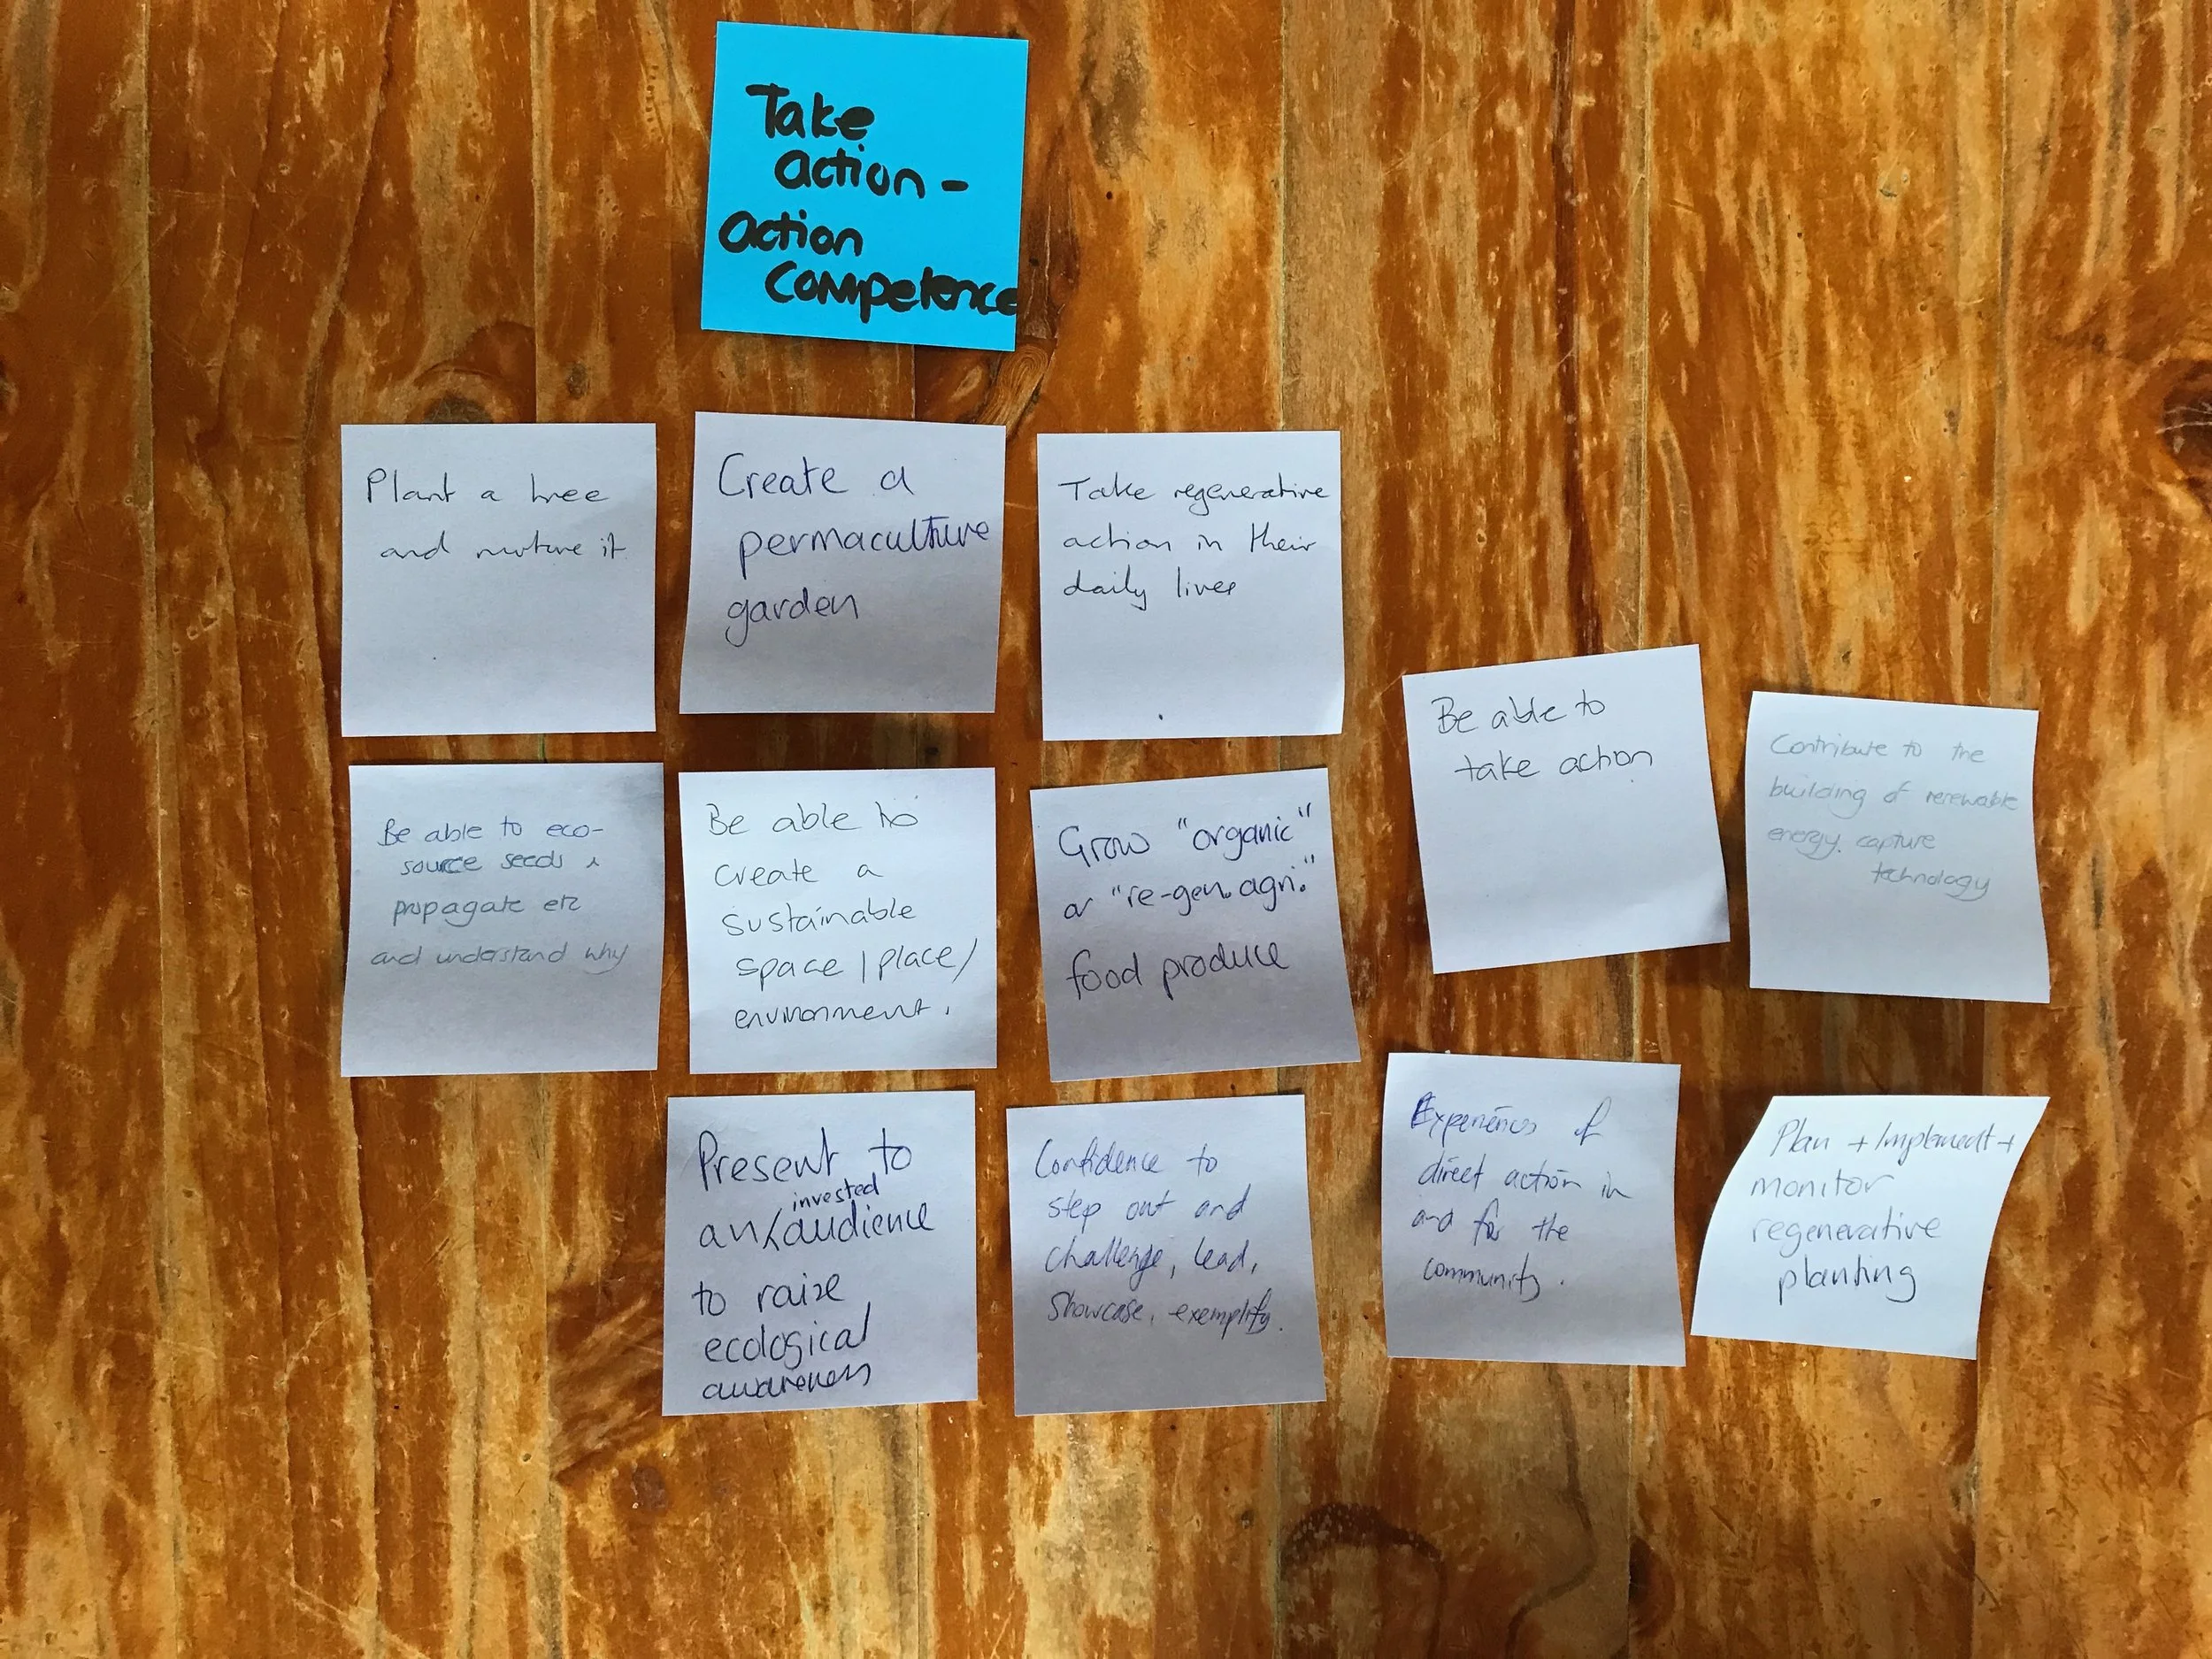 Take
action -
action
competence
Plant a tree
and nurture it
Create a
permaculture
garden
Take regenerative
action in their
daily lives
Be able to
take action
Contribute to the
building of renewable
energy capture
technology
Be able to eco-
source seeds &
propagate etc
and understand why
Be able to
create a
sustainable
space / place /
environment.
Grow "organic"
or "re-gen. agri."
food produce
Present to
invested
an audience
to raise
ecological
awareness
Confidence to
step out and
challenge, lead,
showcase, exemplify.
Experiences of
direct action in
and for the
community.
Plan + Implement +
monitor
regenerative
planting